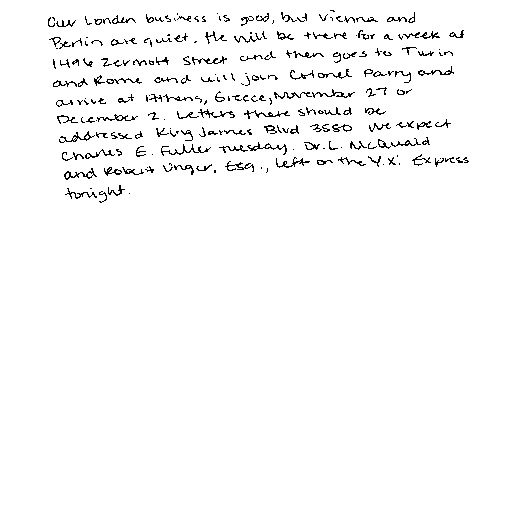 Our London business is good, but Vienna and
Berlin are quiet. He will be there for a week at
1496 Zermott Street and then goes to Turin
and Rome and will join Colonel Parry and
arrive at Athens, Greece, November 27 or
December 2. Letters there should be
addressed King James Blvd 3580 We expect
Charles E. Fuller Tuesday. Dr. L. McQuaid
and Robert Unger, Esq., left on the Y.X. Express
tonight.